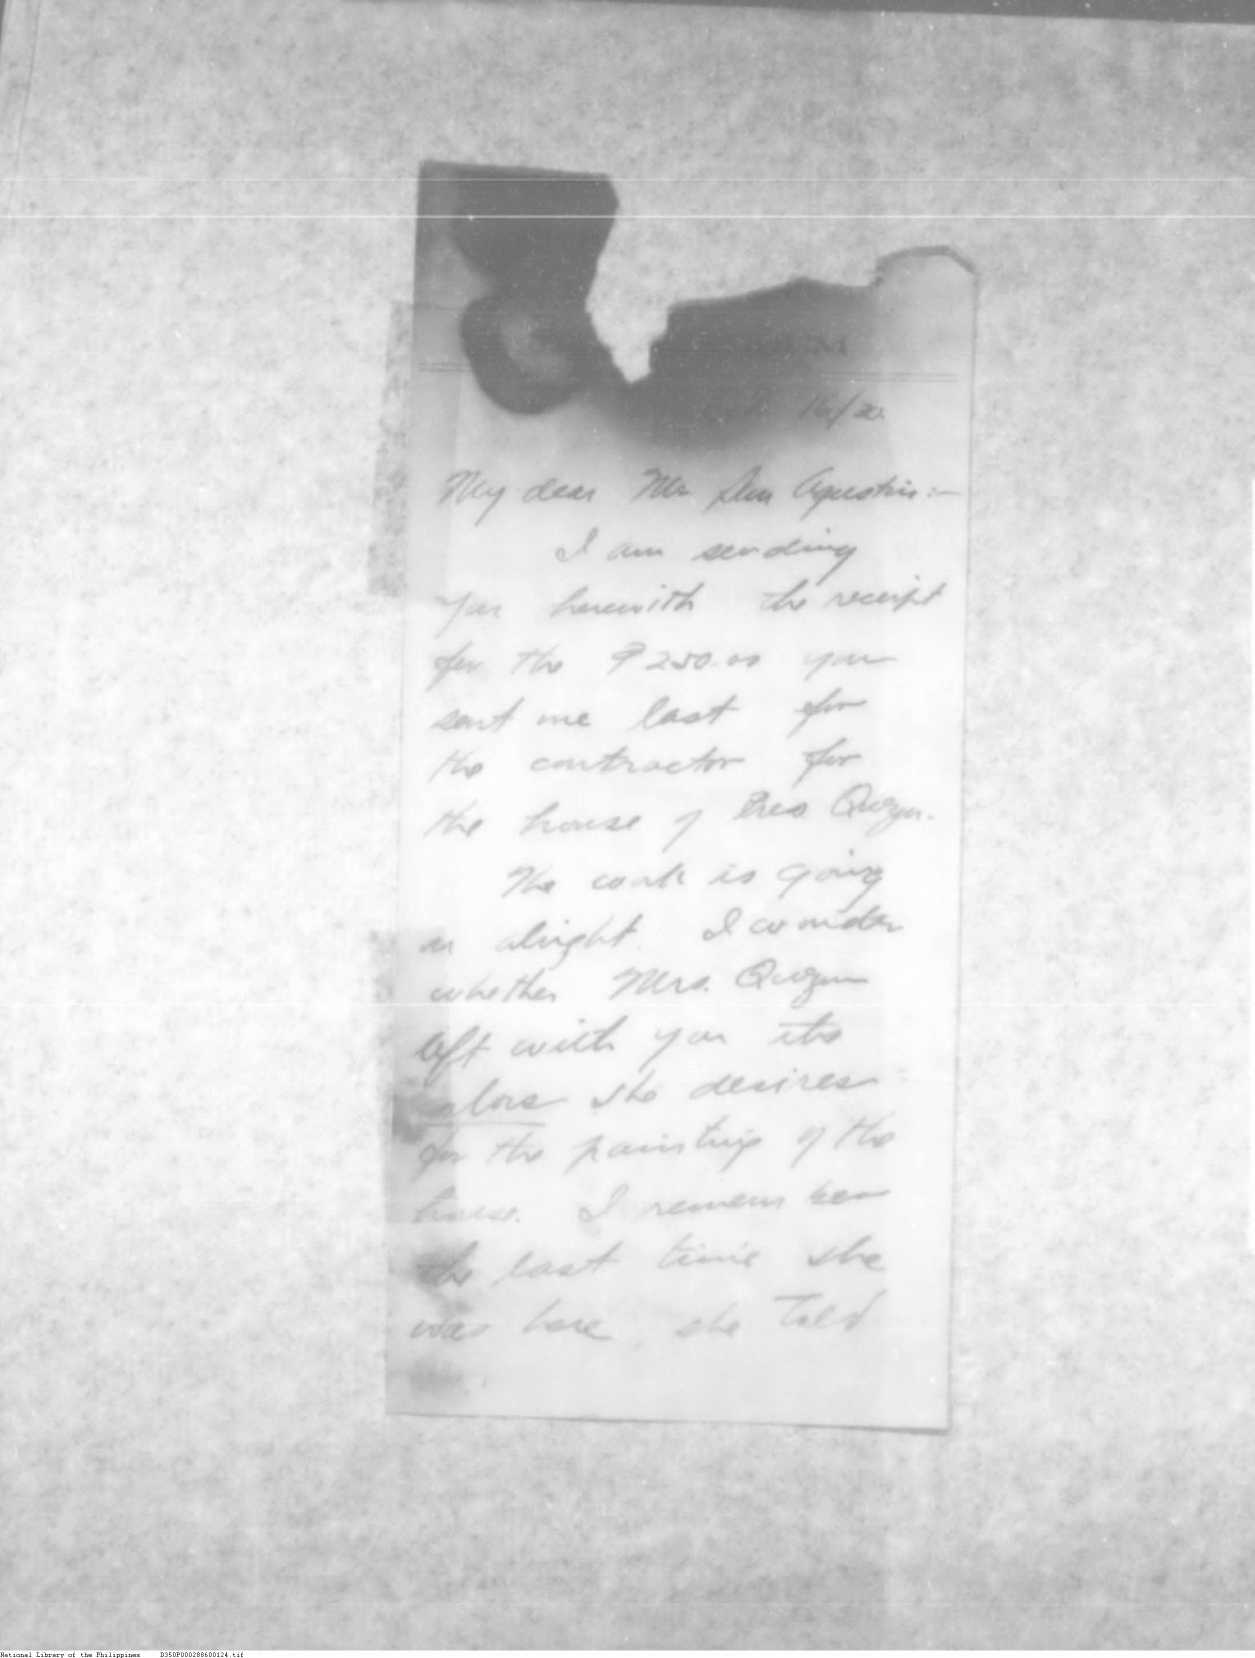 16/20
My dear Mr. San Agustin:-
I am sending
you herewith the receipt
for the ₱250.00 you
sent me last for
the contractor for
the house of Pres Quezon.
The work is going
on alright. I wonder
whether Mrs. Quezon
left with you the
colors she desires
for the painting of the
house. I remember
the last time she
was here she told
National Library of the Philippines D350P000288600124.tif